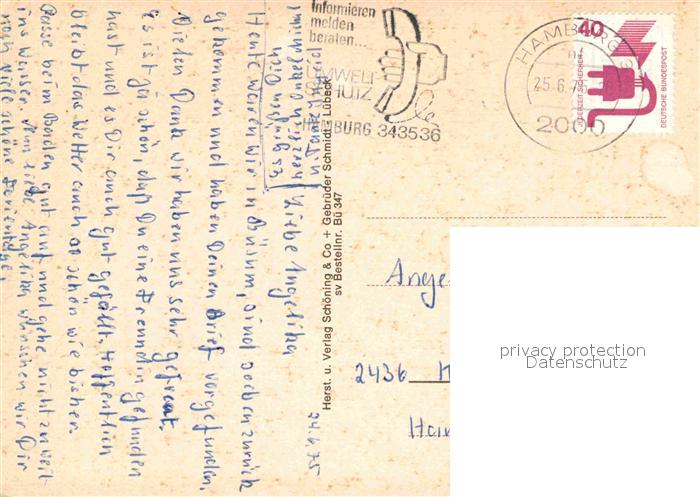 Informieren
melden
beraten...
UMWELT
SCHUTZ
HAMBURG 343536
HAMBURG
25.6.7
2000
40
JEDERZEIT SICHERHEIT
DEUTSCHE BUNDESPOST
24.6.75
Liebe Angelika
Heute waren wir in Büsum, sind soeben zurück
gekommen und haben Deinen Brief vorgefunden.
Vielen Dank wir haben uns sehr gefreut.
Es ist ja schön, daß Du eine Freundin gefunden
hast und es Dir auch gut gefällt. Hoffentlich
bleibt das Wetter auch so schön wie bisher.
Passe beim Baden gut auf und gehe nicht zu weit
ins Wasser. Nun liebe Angelika wünschen wir Dir
noch viele schöne Ferientage.
Es grüßen Dich
herzlich
Herst. u. Verlag Schöning & Co + Gebrüder Schmidt - Lübeck
sv Bestellnr. Bü 347
Ange
2436 H
privacy protection
Datenschutz